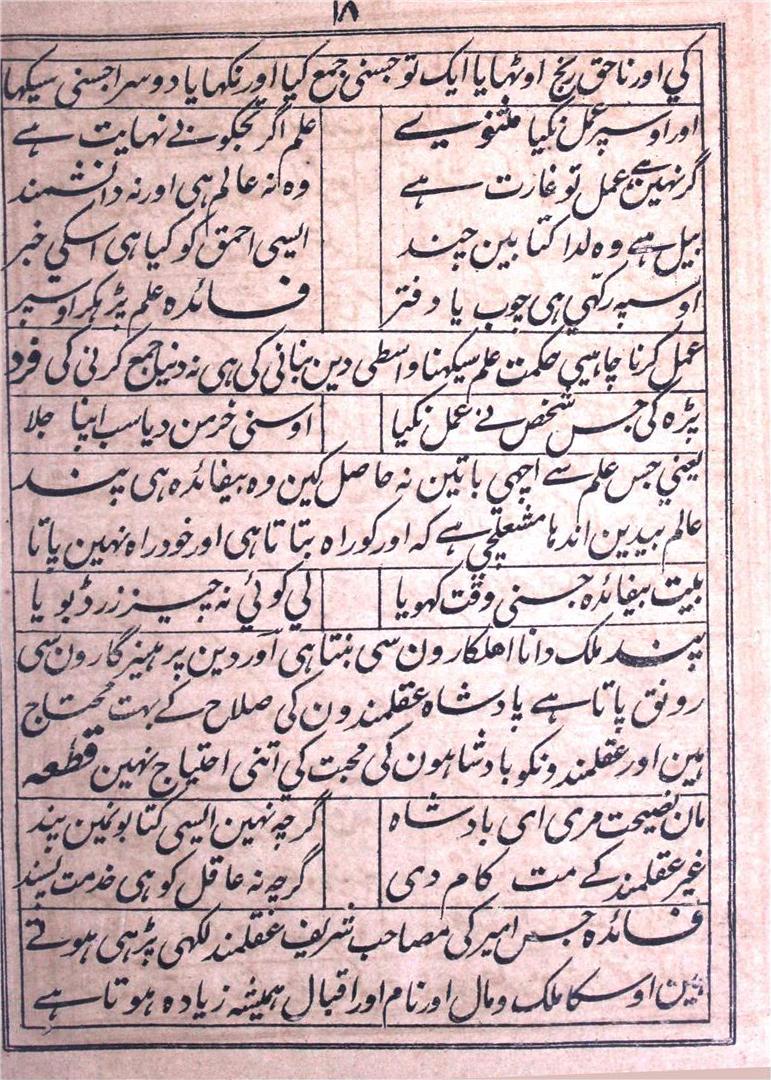 ۱۸
کي اور ناحق رنج اوٹھایا ایک تو جسنی جمع کیا اور نکھایا دوسرا جسنی سیکھا
اور اوسپر عمل نکیا مثنوے علم اگر تجکو بے نہایت ہے
گر نہین ہے عمل تو غارت ہے وہ نہ عالم ہی اور نہ دانشمند
بیل ہے وہ لدا کتابین چند ایسی احمق کو کیا ہی اسکي خبر
اوسپہ رکہي ہی چوب یا دفتر فائدہ علم پڑہکر اوسپر
عمل کرنا چاہیي حکمت علم سیکھنا واسطی دین بنانی کی ہی نہ دنیا جمع کرنی کی فرد
پڑہ کی جس شخص نے عمل نکیا اوسنی خرمن دیا سب اپنا جلا
یعني جس علم سے اچھی باتین نہ حاصل کین وہ بیفائدہ ہی پند
عالم بیدین اندھا مشعلچي ہے کہ اور کو راہ بتاتا ہی اور خود راہ نہین پاتا
بیت بیفائدہ جسنی وقت کھویا لي کوئي نہ چیز زر ڈبویا
پند ملک دانا اھلکارون سی بنتا ہی اور دین پرھیزگارون سی
رونق پاتا ہے پادشاہ عقلمندون کی صلاح کے بہت محتاج
ہین اور عقلمندونکو بادشاھون کی محبت کي اتني احتیاج نہین قطعہ
مان نصیحت مری ای بادشاہ گرچہ نہین ایسی کتابونمین پند
غیر عقلمند کے مت کام دی گرچہ نہ عاقل کو ہی خدمت پسند
فائدہ جس امیر کی مصاحب شریف عقلمند لکھی پڑھی ہوتے
ہین اوسکا ملک و مال اور نام اور اقبال ھمیشہ زیادہ ہوتا ہے